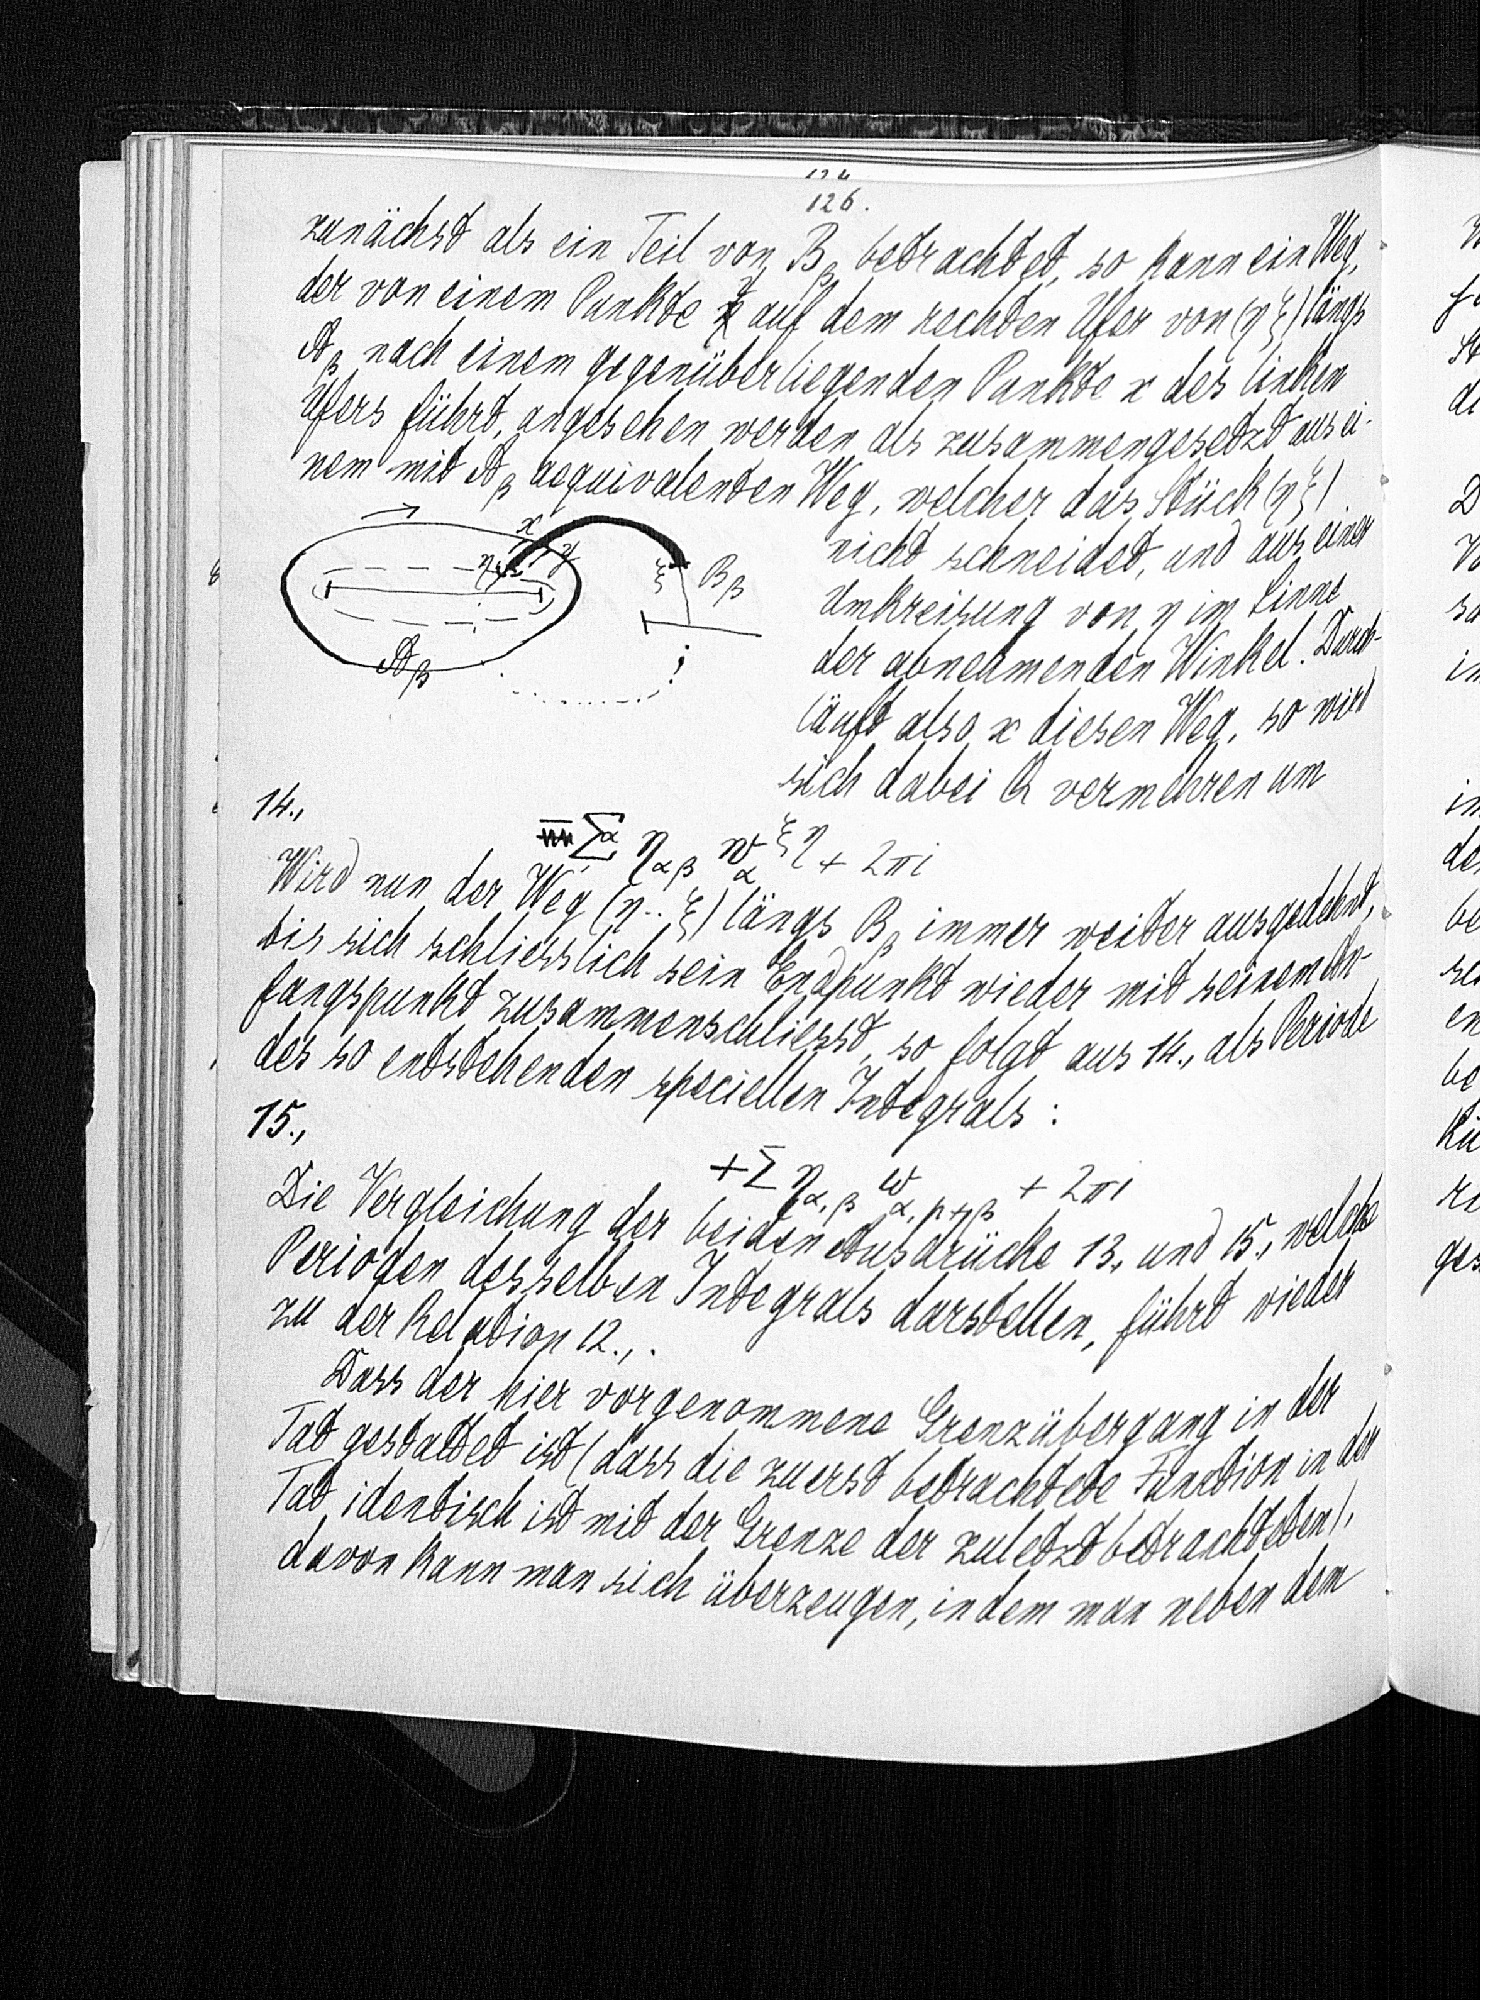 126.
zunächst als ein Teil von B_β betrachtet, so kann ein Weg,
der von einem Punkte y auf dem rechten Ufer von (η ξ) längs
A_β nach einem gegenüberliegenden Punkte x des linken
Ufers führt, angesehen werden als zusammengesetzt aus ei-
nem mit A_β aequivalenten Weg, welcher das Stück (η ξ)
nicht schneidet, und aus einer
Umkreisung von η im Sinne
der abnehmenden Winkel. Durch-
läuft also x diesen Weg, so wird
sich dabei Q vermehren um
x
y
η
ξ
B_β
A_β
14.,
Σ^α η_αβ w_α^ξη + 2πi
Wird nun der Weg (η .. ξ) längs B_β immer weiter ausgedehnt,
bis sich schliesslich sein Endpunkt wieder mit seinem An-
fangspunkt zusammenschliesst, so folgt aus 14., als Periode
des so entstehenden speciellen Integrals :
15.,
+ Σ η_α,β ω_α,p+β + 2πi
Die Vergleichung der beiden Ausdrücke 13., und 15., welche
Perioden desselben Integrals darstellen, führt wieder
zu der Relation 12., .
Dass der hier vorgenommene Grenzübergang in der
Tat gestattet ist (dass die zuerst betrachtete Function in der
Tat identisch ist mit der Grenze der zuletzt betrachteten),
davon kann man sich überzeugen, indem man neben dem